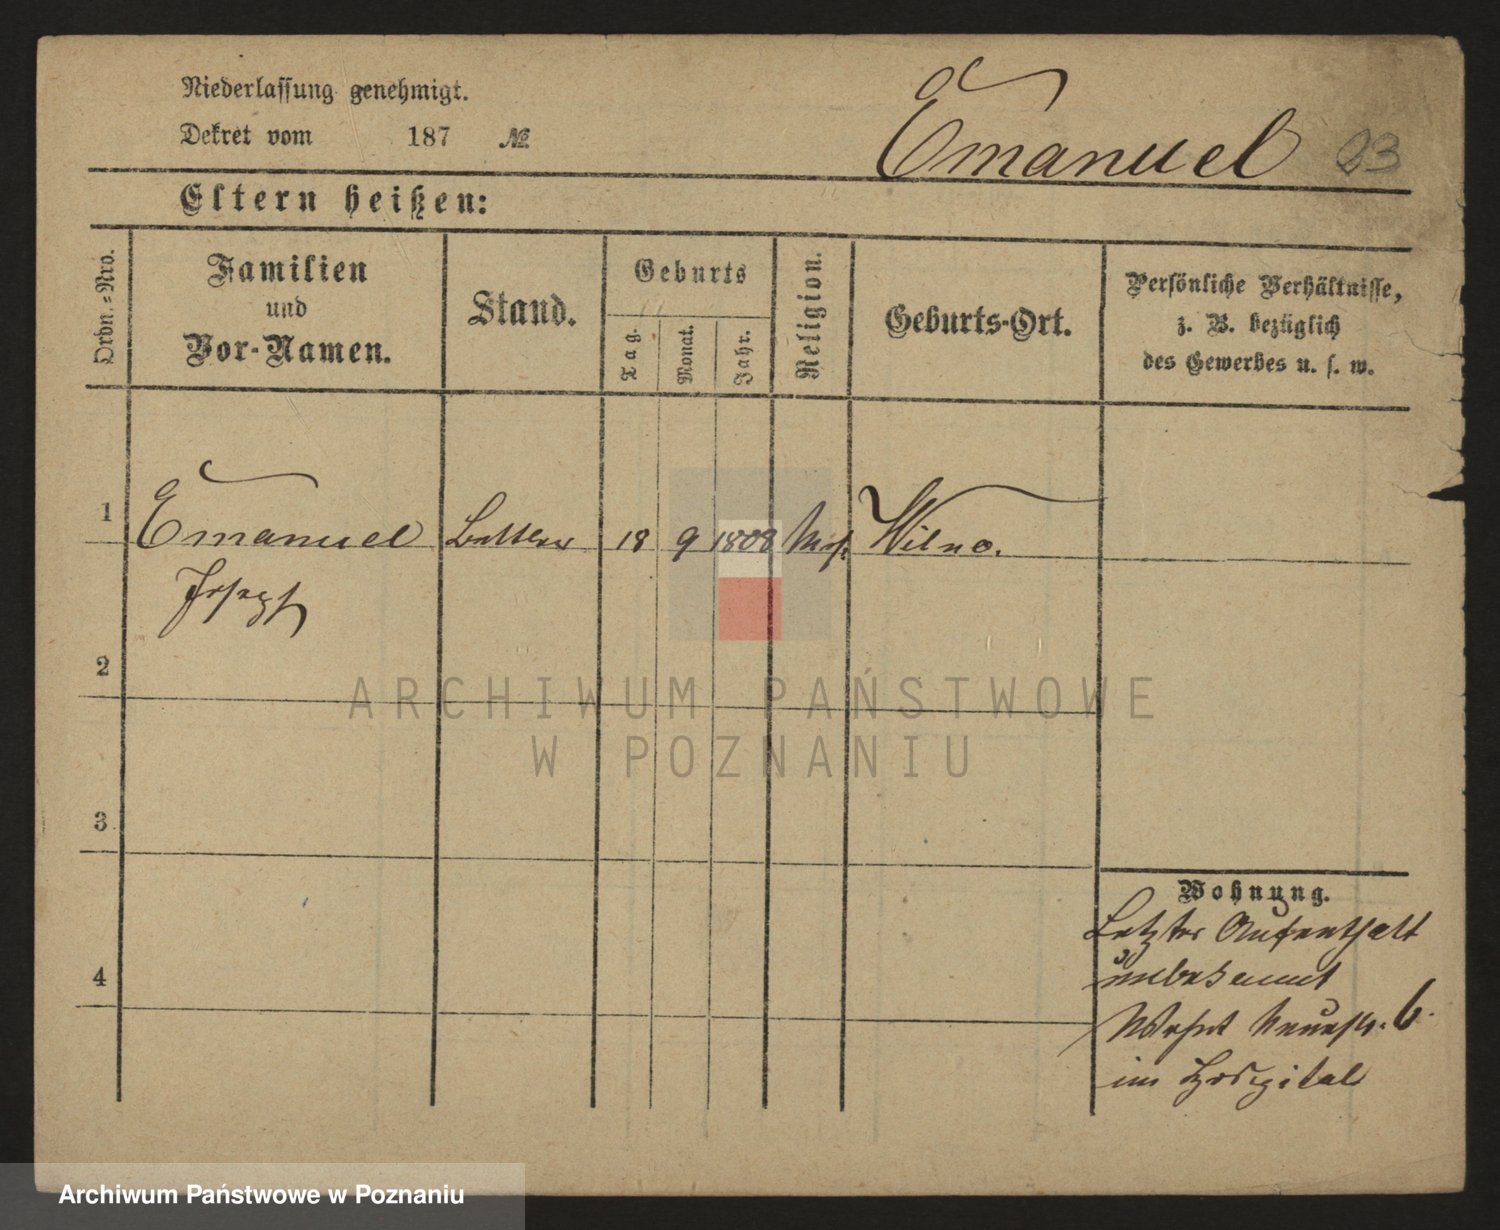 Niederlassung genehmigt.
Dekret vom 187 №
Emanuel 23
Eltern heißen:
Ordn.=Nro.
Familien
und
Vor-Namen.
Stand.
Geburts
Tag.
Monat.
Jahr.
Religion.
Geburts-Ort.
Persönliche Verhältnisse,
z. B. bezüglich
des Gewerbes u. s. w.
1 Emanuel Bettler 18 9 1808 Mos. Wilno.
Joseph
2
3
4
Wohnung.
Letzter Aufenthalt
unbekannt
Wohnt Neuestr. 6.
im Hospital
ARCHIWUM PAŃSTWOWE
W POZNANIU
Archiwum Państwowe w Poznaniu